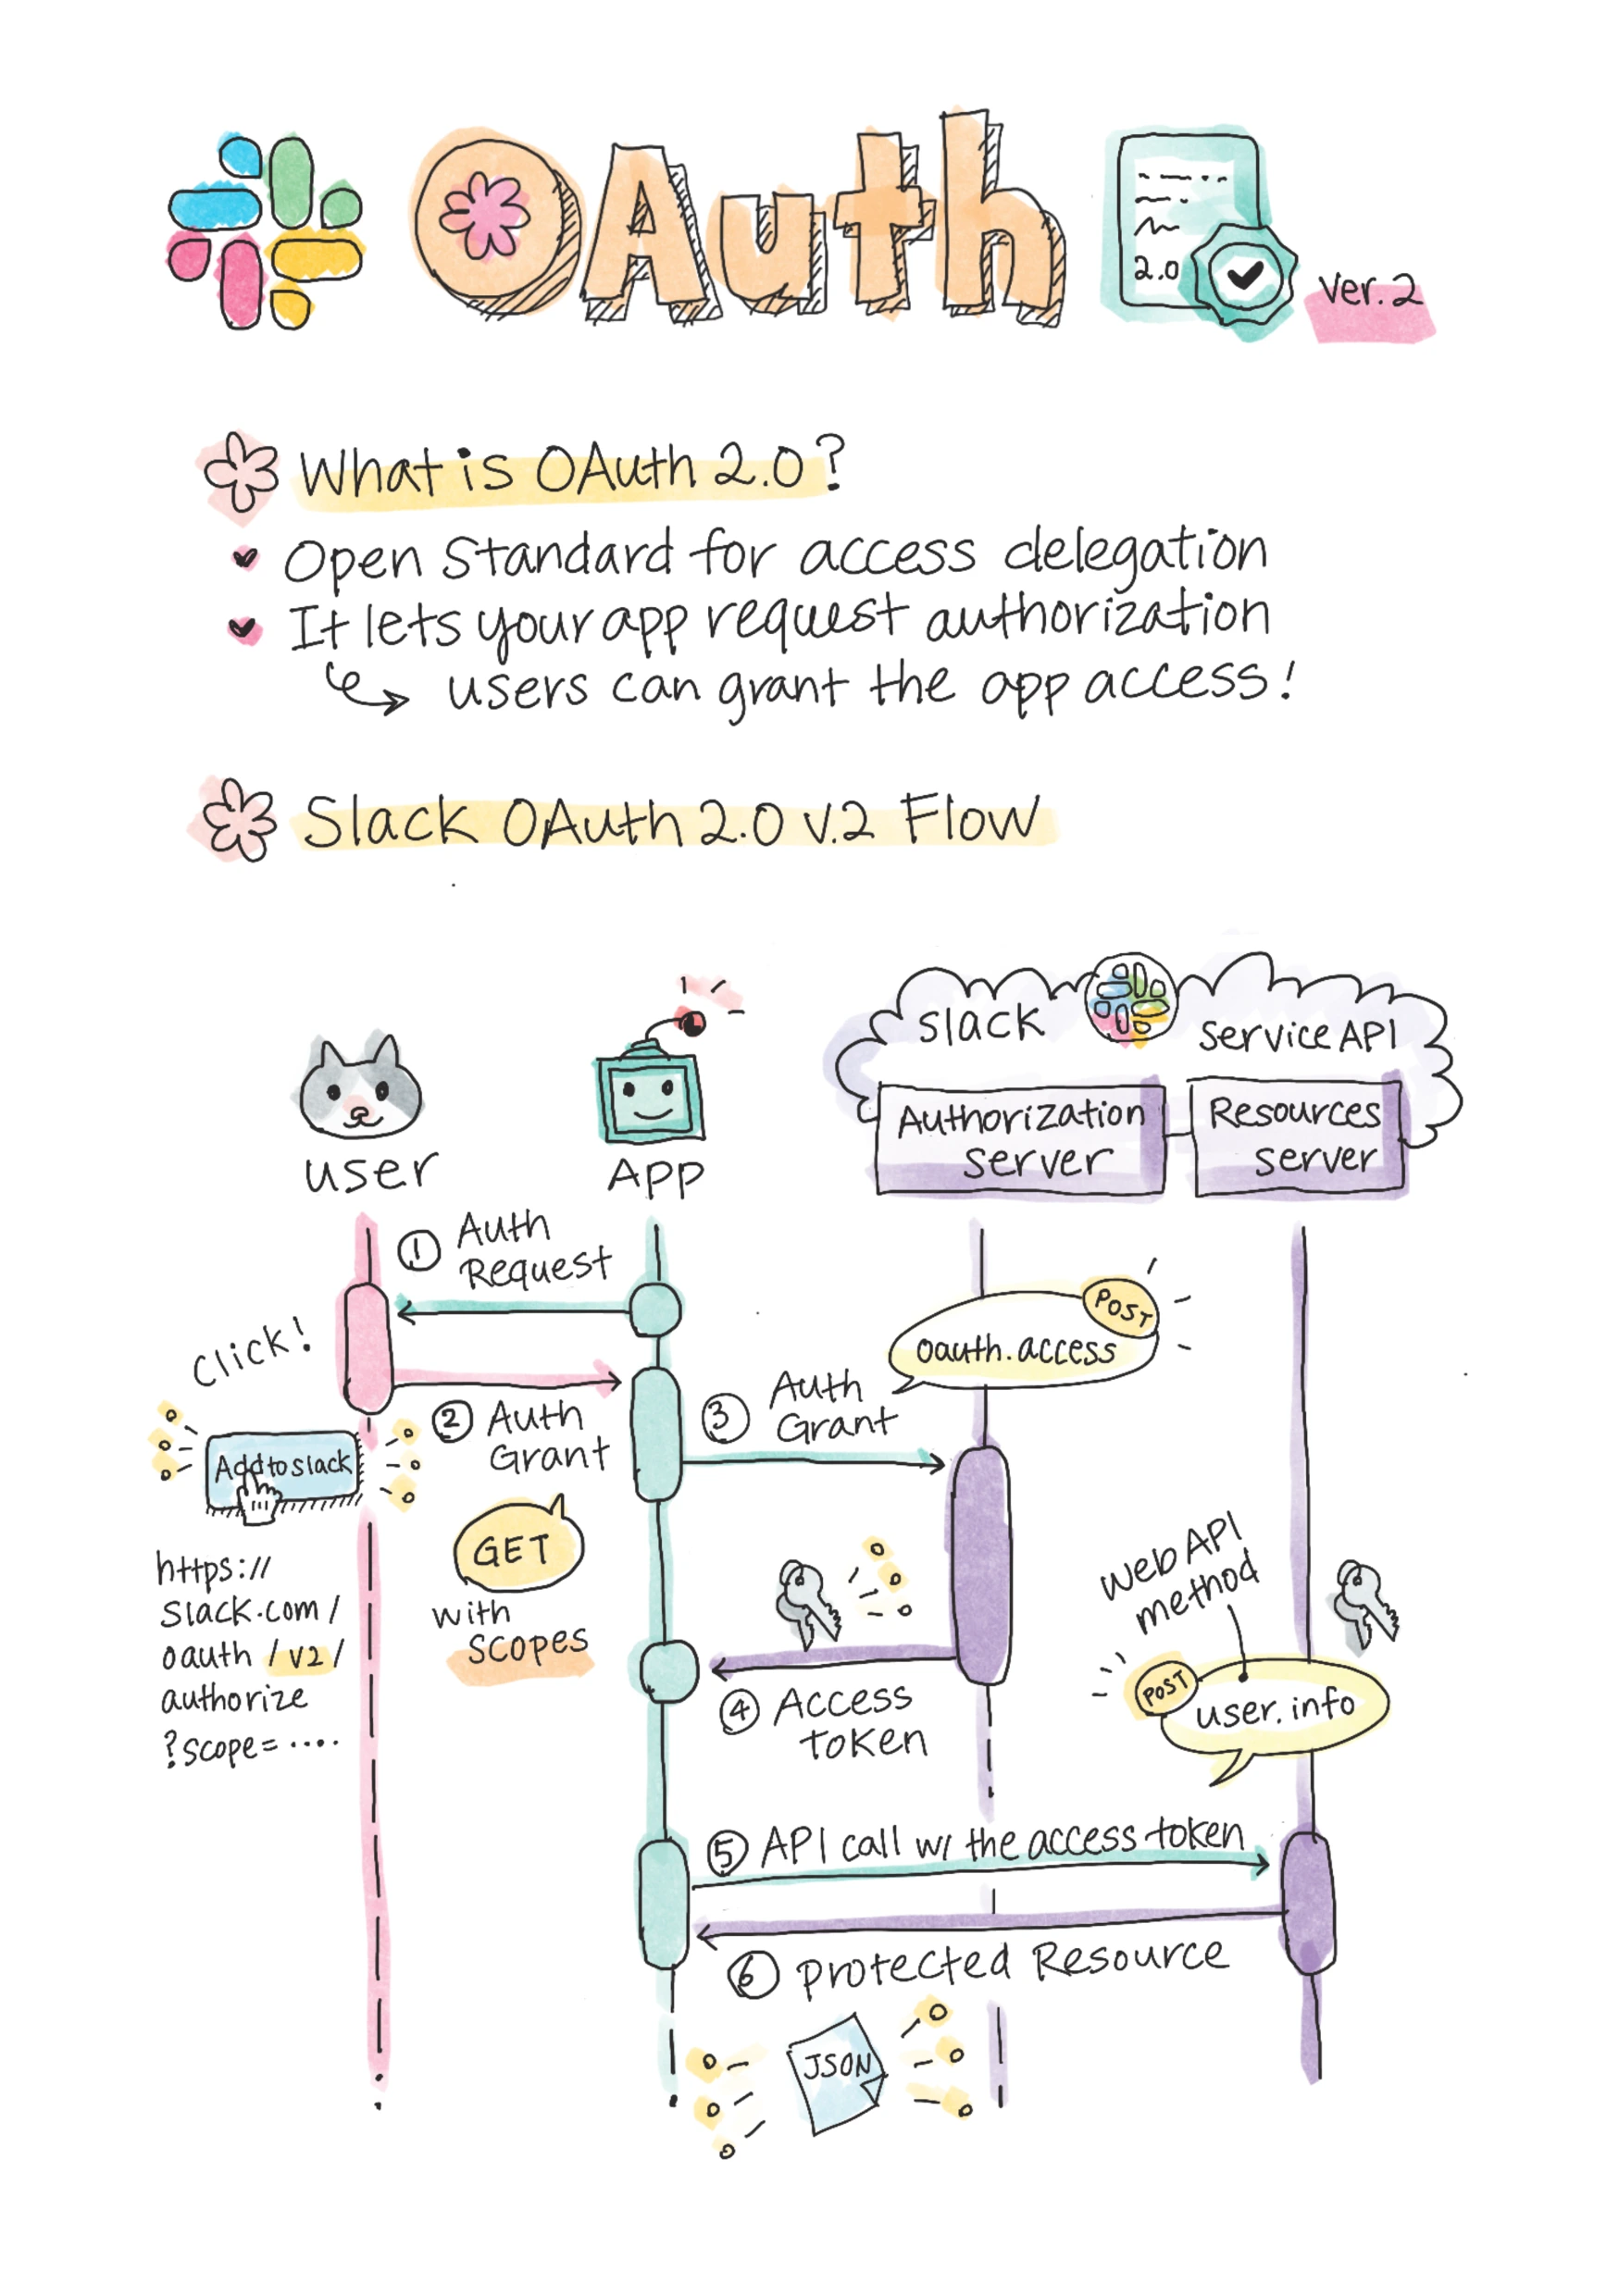 OAuth
2.0
ver. 2
What is OAuth 2.0?
Open Standard for access delegation
It lets your app request authorization
users can grant the app access!
Slack OAuth 2.0 v.2 Flow
slack
service API
Authorization
server
Resources
server
user
APP
① Auth
Request
Click!
② Auth
Grant
Add to slack
GET
with
SCOPES
https://
slack.com/
oauth/v2/
authorize
?scope=....
POST
oauth.access
③ Auth
Grant
④ Access
token
Web API
method
POST
user.info
⑤ API call w/ the access token
⑥ protected Resource
JSON